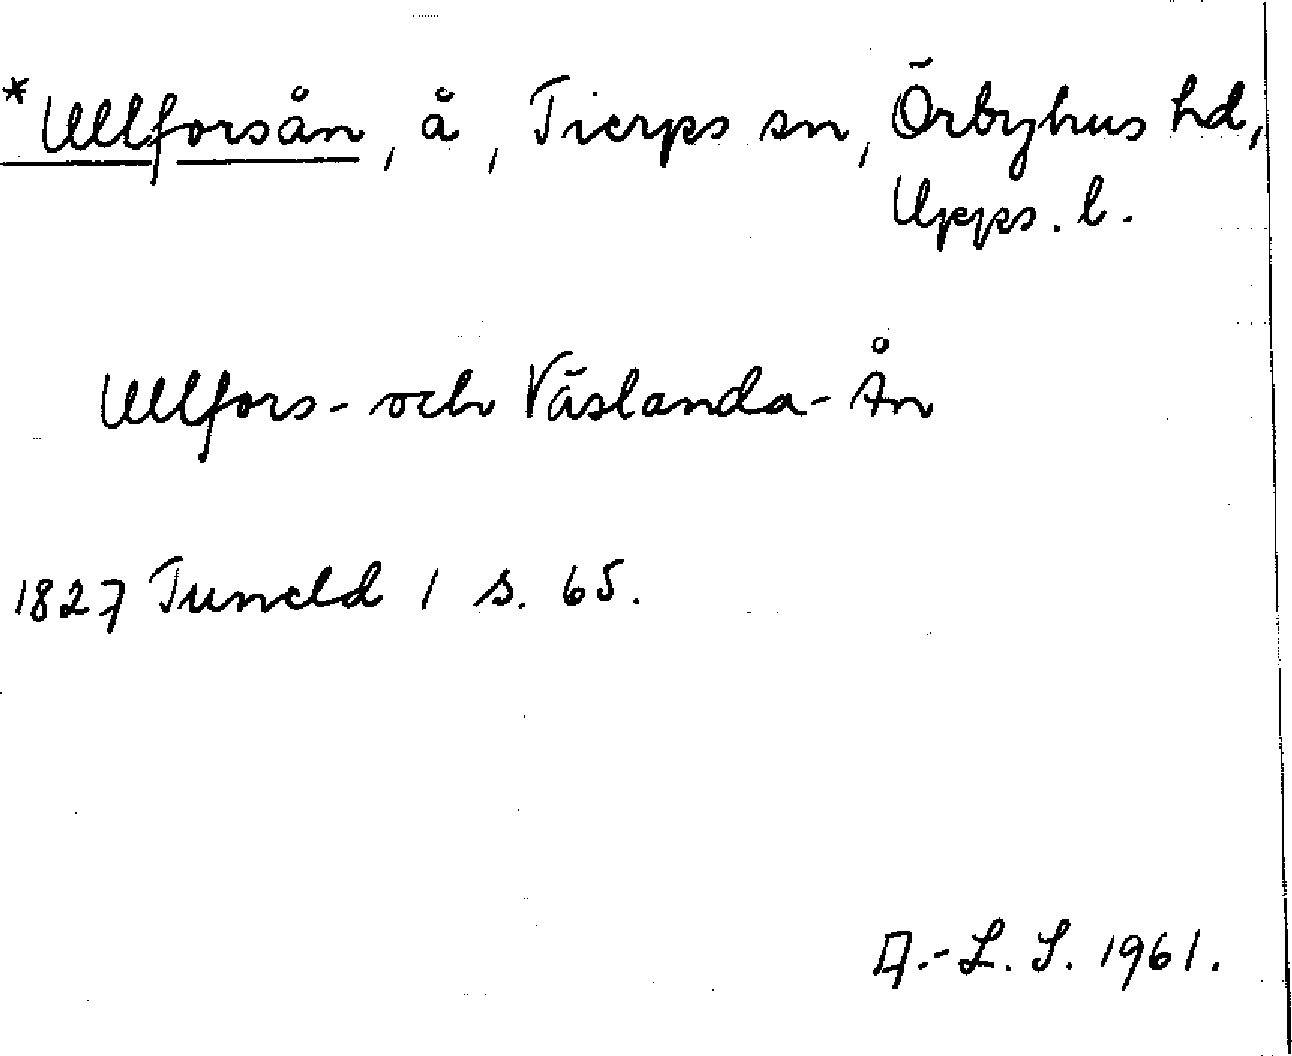 *Ullforsån, å, Tierps sn, Örbyhus hd,
Upps. l.
Ullfors- och Väslanda-Ån
1827 Tuneld 1 s. 65.
A.-L. S. 1961.